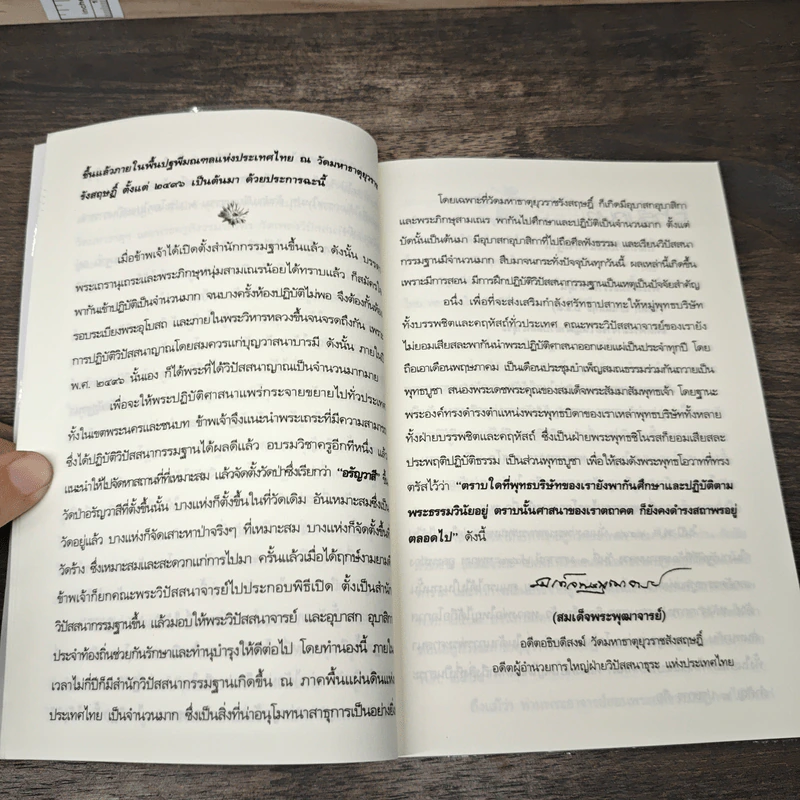 ขึ้นแล้วภายในพื้นปฐพีมณฑลแห่งประเทศไทย ณ วัดมหาธาตุยุวราช
รังสฤษฎิ์ ตั้งแต่ ๒๔๙๖ เป็นต้นมา ด้วยประการฉะนี้
เมื่อข้าพเจ้าได้เปิดตั้งสำนักกรรมฐานขึ้นแล้ว ดังนั้น
พระเถรานุเถระและพระภิกษุหนุ่มสามเณรน้อยได้ทราบแล้ว ก็สมัครใจ
พากันเข้าปฏิบัติเป็นจำนวนมาก จนบางครั้งห้องปฏิบัติไม่พอ จึงต้องกั้นห้อง
รอบระเบียงพระอุโบสถ และภายในพระวิหารหลวงขึ้นจนจรดถึงกัน เพราะ
การปฏิบัติวิปัสสนาญาณโดยสมควรแก่บุญวาสนาบารมี ดังนั้น ภายใน
พ.ศ. ๒๔๙๖ นั้นเอง ก็ได้พระที่ได้วิปัสสนาญาณเป็นจำนวนมากมาย
เพื่อจะให้พระปฏิบัติศาสนาแพร่กระจายขยายไปทั่วประเทศ
ทั้งในเขตพระนครและชนบท ข้าพเจ้าจึงแนะนำพระเถระที่มีความสามารถ
ซึ่งได้ปฏิบัติวิปัสสนากรรมฐานได้ผลดีแล้ว อบรมวิชาครูอีกทีหนึ่ง แล้ว
แนะนำให้ไปจัดหาสถานที่ที่เหมาะสม แล้วจัดตั้งวัดป่าซึ่งเรียกว่า "อรัญวาสี"
วัดป่าอรัญวาสีที่ตั้งขึ้นนั้น บางแห่งก็ตั้งขึ้นในที่วัดเดิม อันเหมาะสมซึ่งเป็น
วัดอยู่แล้ว บางแห่งก็จัดเสาะหาป่าจริงๆ ที่เหมาะสม บางแห่งก็จัดตั้งขึ้นที่
วัดร้าง ซึ่งเหมาะสมและสะดวกแก่การไปมา ครั้นแล้วเมื่อได้ฤกษ์งามยามดี
ข้าพเจ้าก็ยกคณะพระวิปัสสนาจารย์ไปประกอบพิธีเปิด ตั้งเป็นสำนัก
วิปัสสนากรรมฐานขึ้น แล้วมอบให้พระวิปัสสนาจารย์ และอุบาสก อุบาสิกา
ประจำท้องถิ่นช่วยกันรักษาและทำนุบำรุงให้ดีต่อไป โดยทำนองนี้ ภายใน
เวลาไม่กี่ปีก็มีสำนักวิปัสสนากรรมฐานเกิดขึ้น ณ ภาคพื้นแผ่นดินแห่ง
ประเทศไทย เป็นจำนวนมาก ซึ่งเป็นสิ่งที่น่าอนุโมทนาสาธุการเป็นอย่างยิ่ง
โดยเฉพาะที่วัดมหาธาตุยุวราชรังสฤษฎิ์ ก็เกิดมีอุบาสกอุบาสิกา
และพระภิกษุสามเณร พากันไปศึกษาและปฏิบัติเป็นจำนวนมาก ตั้งแต่
บัดนั้นเป็นต้นมา มีอุบาสกอุบาสิกาที่ไปถือศีลฟังธรรม และเรียนวิปัสสนา
กรรมฐานมีจำนวนมาก สืบมาจนกระทั่งปัจจุบันทุกวันนี้ ผลเหล่านี้เกิดขึ้น
เพราะมีการสอน มีการฝึกปฏิบัติวิปัสสนากรรมฐานเป็นเหตุเป็นปัจจัยสำคัญ
อนึ่ง เพื่อที่จะส่งเสริมกำลังศรัทธาปสาทะให้หมู่พุทธบริษัท
ทั้งบรรพชิตและคฤหัสถ์ทั่วประเทศ คณะพระวิปัสสนาจารย์ของเรายัง
ไม่ยอมเสียสละพากันนำพระปฏิบัติศาสนาออกเผยแผ่เป็นประจำทุกปี โดย
ถือเอาเดือนพฤษภาคม เป็นเดือนประชุมบำเพ็ญสมณธรรมร่วมกันถวายเป็น
พุทธบูชา สนองพระเดชพระคุณของสมเด็จพระสัมมาสัมพุทธเจ้า โดยฐานะ
พระองค์ทรงดำรงตำแหน่งพระพุทธบิดาของเราเหล่าพุทธบริษัททั้งหลาย
ทั้งฝ่ายบรรพชิตและคฤหัสถ์ ซึ่งเป็นฝ่ายพระพุทธชิโนรสก็ยอมเสียสละ
ประพฤติปฏิบัติธรรม เป็นส่วนพุทธบูชา เพื่อให้สมดังพระพุทธโอวาทที่ทรง
ตรัสไว้ว่า "ตราบใดที่พุทธบริษัทของเรายังพากันศึกษาและปฏิบัติตาม
พระธรรมวินัยอยู่ ตราบนั้นศาสนาของเราตถาคต ก็ยังคงดำรงสถาพรอยู่
ตลอดไป" ดังนี้
(สมเด็จพระพุฒาจารย์)
อดีตอธิบดีสงฆ์ วัดมหาธาตุยุวราชรังสฤษฎิ์
อดีตผู้อำนวยการใหญ่ฝ่ายวิปัสสนาธุระ แห่งประเทศไทย